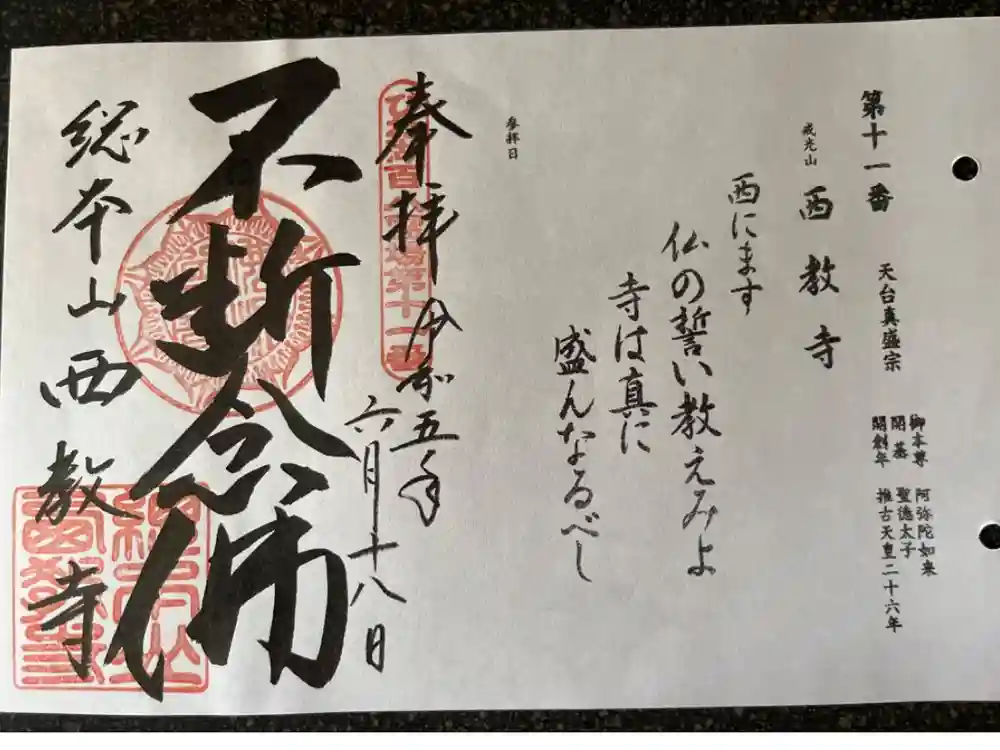 第十一番
天台真盛宗
戒光山
西教寺
御本尊 阿弥陀如来
開基 聖徳太子
開創年 推古天皇二十六年
西にます
仏の誓い教えみよ
寺は真に
盛んなるべし
参拝日
奉拝
令和五年
六月十八日
不断念佛
総本山西教寺